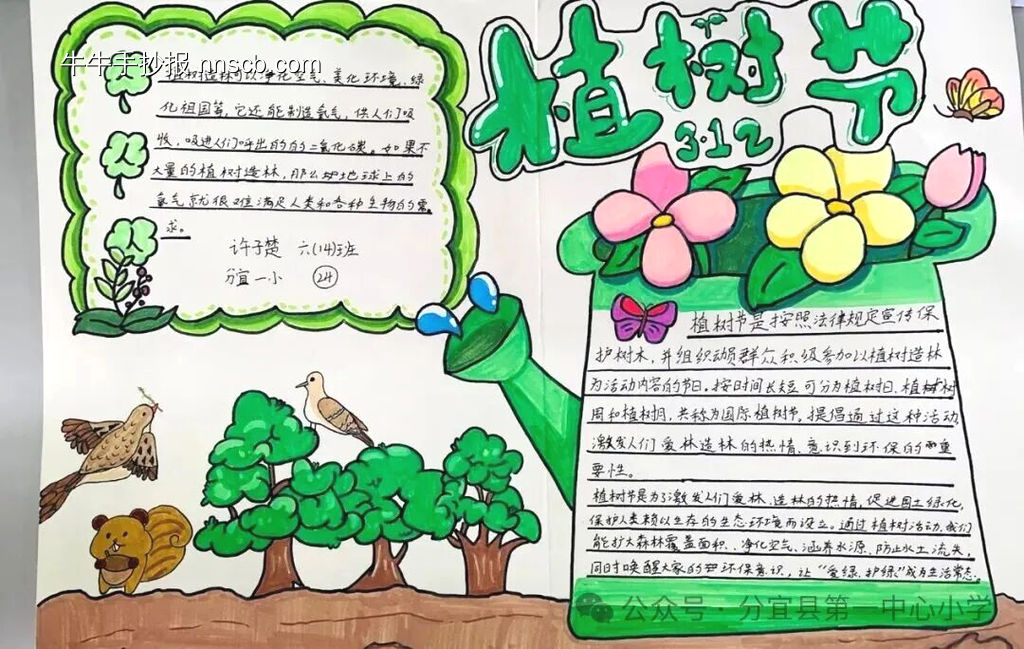 牛牛手抄报 nnscb.com
植树节
3.12
植树造林可以净化空气、美化环境、绿
化祖国等,它还能制造氧气,供人们吸
收,吸进人们呼出的的二氧化碳。如果不
大量的植树造林,那么地球上的
氧气就很难满足人类和各种生物的需
求。
许子楚 六(14)班
分宜一小 24
植树节是按照法律规定宣传保
护树木,并组织动员群众积极参加以植树造林
为活动内容的节日。按时间长短可分为植树日、植树
周和植树月,共称为国际植树节。提倡通过这种活动,
激发人们爱林造林的热情、意识到环保的重
要性。
植树节是为了激发人们爱林、造林的热情,促进国土绿化,
保护人类赖以生存的生态环境而设立。通过植树活动,我们
能扩大森林覆盖面积、净化空气、涵养水源、防止水土流失,
同时唤醒大家的环保意识,让“爱绿、护绿”成为生活常态.
公众号·分宜县第一中心小学